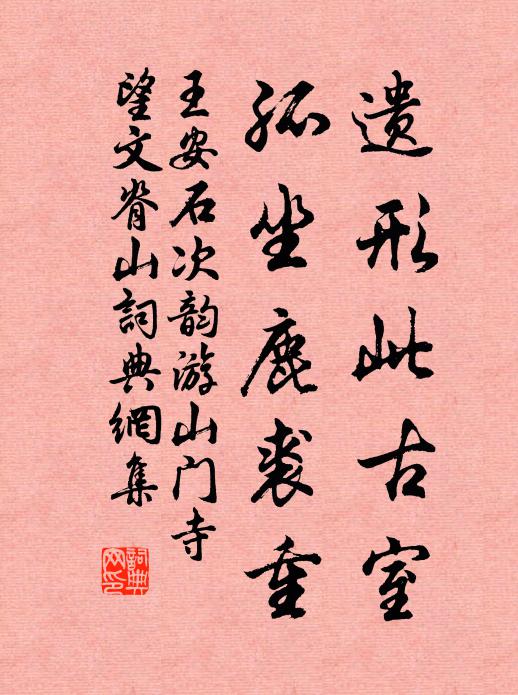 遗形此古室
孤坐鹿裘重
王安石次韵游山门寺
望文脊山詞典網集
詞典
网印